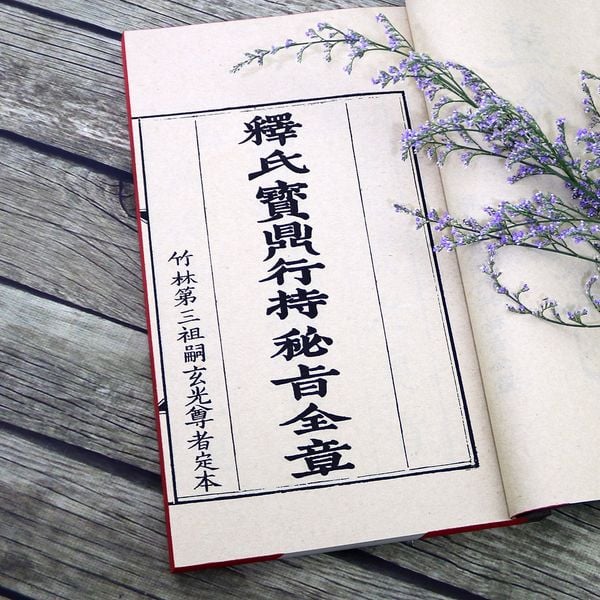 釋氏寶鼎行持秘旨全章
竹林第三祖嗣玄光尊者定本